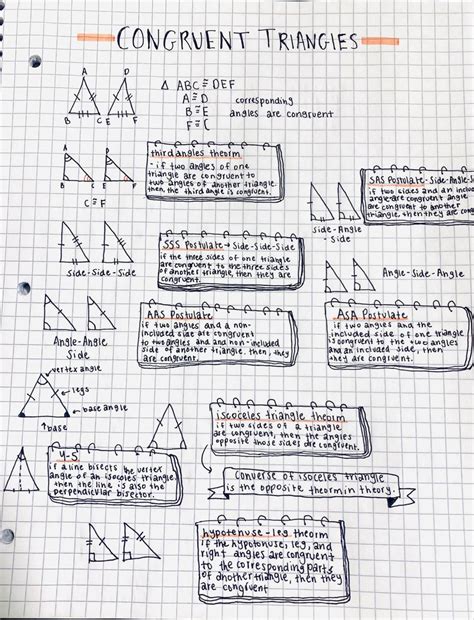 CONGRUENT TRIANGLES
A D
B C E F
Δ ABC ≅ DEF
A ≅ D corresponding
B ≅ E angles are congruent
F ≅ C
A D
B C E F
C ≅ F
third angles theorm
- if two angles of one
triangle are congruent to
two angles of another triangle,
then, the third angle is congruent.
SAS Postulate - Side-Angle-S
if two sides and an inc
angle are congruent angle
are congruent to another
triangle, then they are cong
Side-Angle
- Side
SSS Postulate → Side-Side-Side
if the three sides of one triangle
are congruent to the three sides
of another triangle, then they are
congruent.
side-side-side
Angle-Side-Angle
AAS Postulate
if two angles and a non-
included side are congruent
to two angles and and non-included
side of another triangle, then, they
are congruent.
ASA Postulate
if two angles and the
included side of one triangle
is congruent to the two angles
and an included side, then
they are congruent.
Angle-Angle
Side
vertex angle
legs
base angle
↑base
iscoceles triangle theorm
if two sides of a triangle
are congruent, then the angles
opposite those sides are congruent.
Converse of isoceles triangle
is the opposite theorm in theory.
4-5
if a line bisects the vertex
angle of an isocoles triangle,
then the line is also the
perpendicular bisector.
hypotenuse - leg theorm
if the hypotonuse, leg, and
right angles are congruent
to the corresponding parts
of another triangle, then they
are congruent